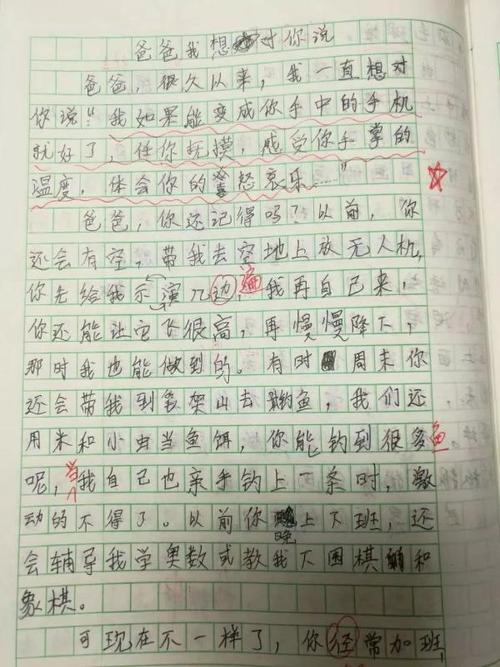 爸爸我想对你说
爸爸，很久以来，我一直想对
你说："我如果能变成你手中的手机
就好了，任你抚摸，感受你手掌的
温度，体会你的喜怒哀乐……"
爸爸，你还记得吗？以前，你
还会有空，带我去空地上放无人机，
你先给我示演几动遍，我再自己来，
你还能让它飞很高，再慢慢降下，
那时我也能做到的。有时周末你
还会带我到多架山去钓鱼，我们还
用米和小虫当鱼饵，你能钓到很多鱼
呢，当我自己也亲手钓上一条时，激
动的不得了。以前你晚上下班，还
会辅导我学奥数或教我下围棋和
象棋。
可现在不一样了，你经常加班，